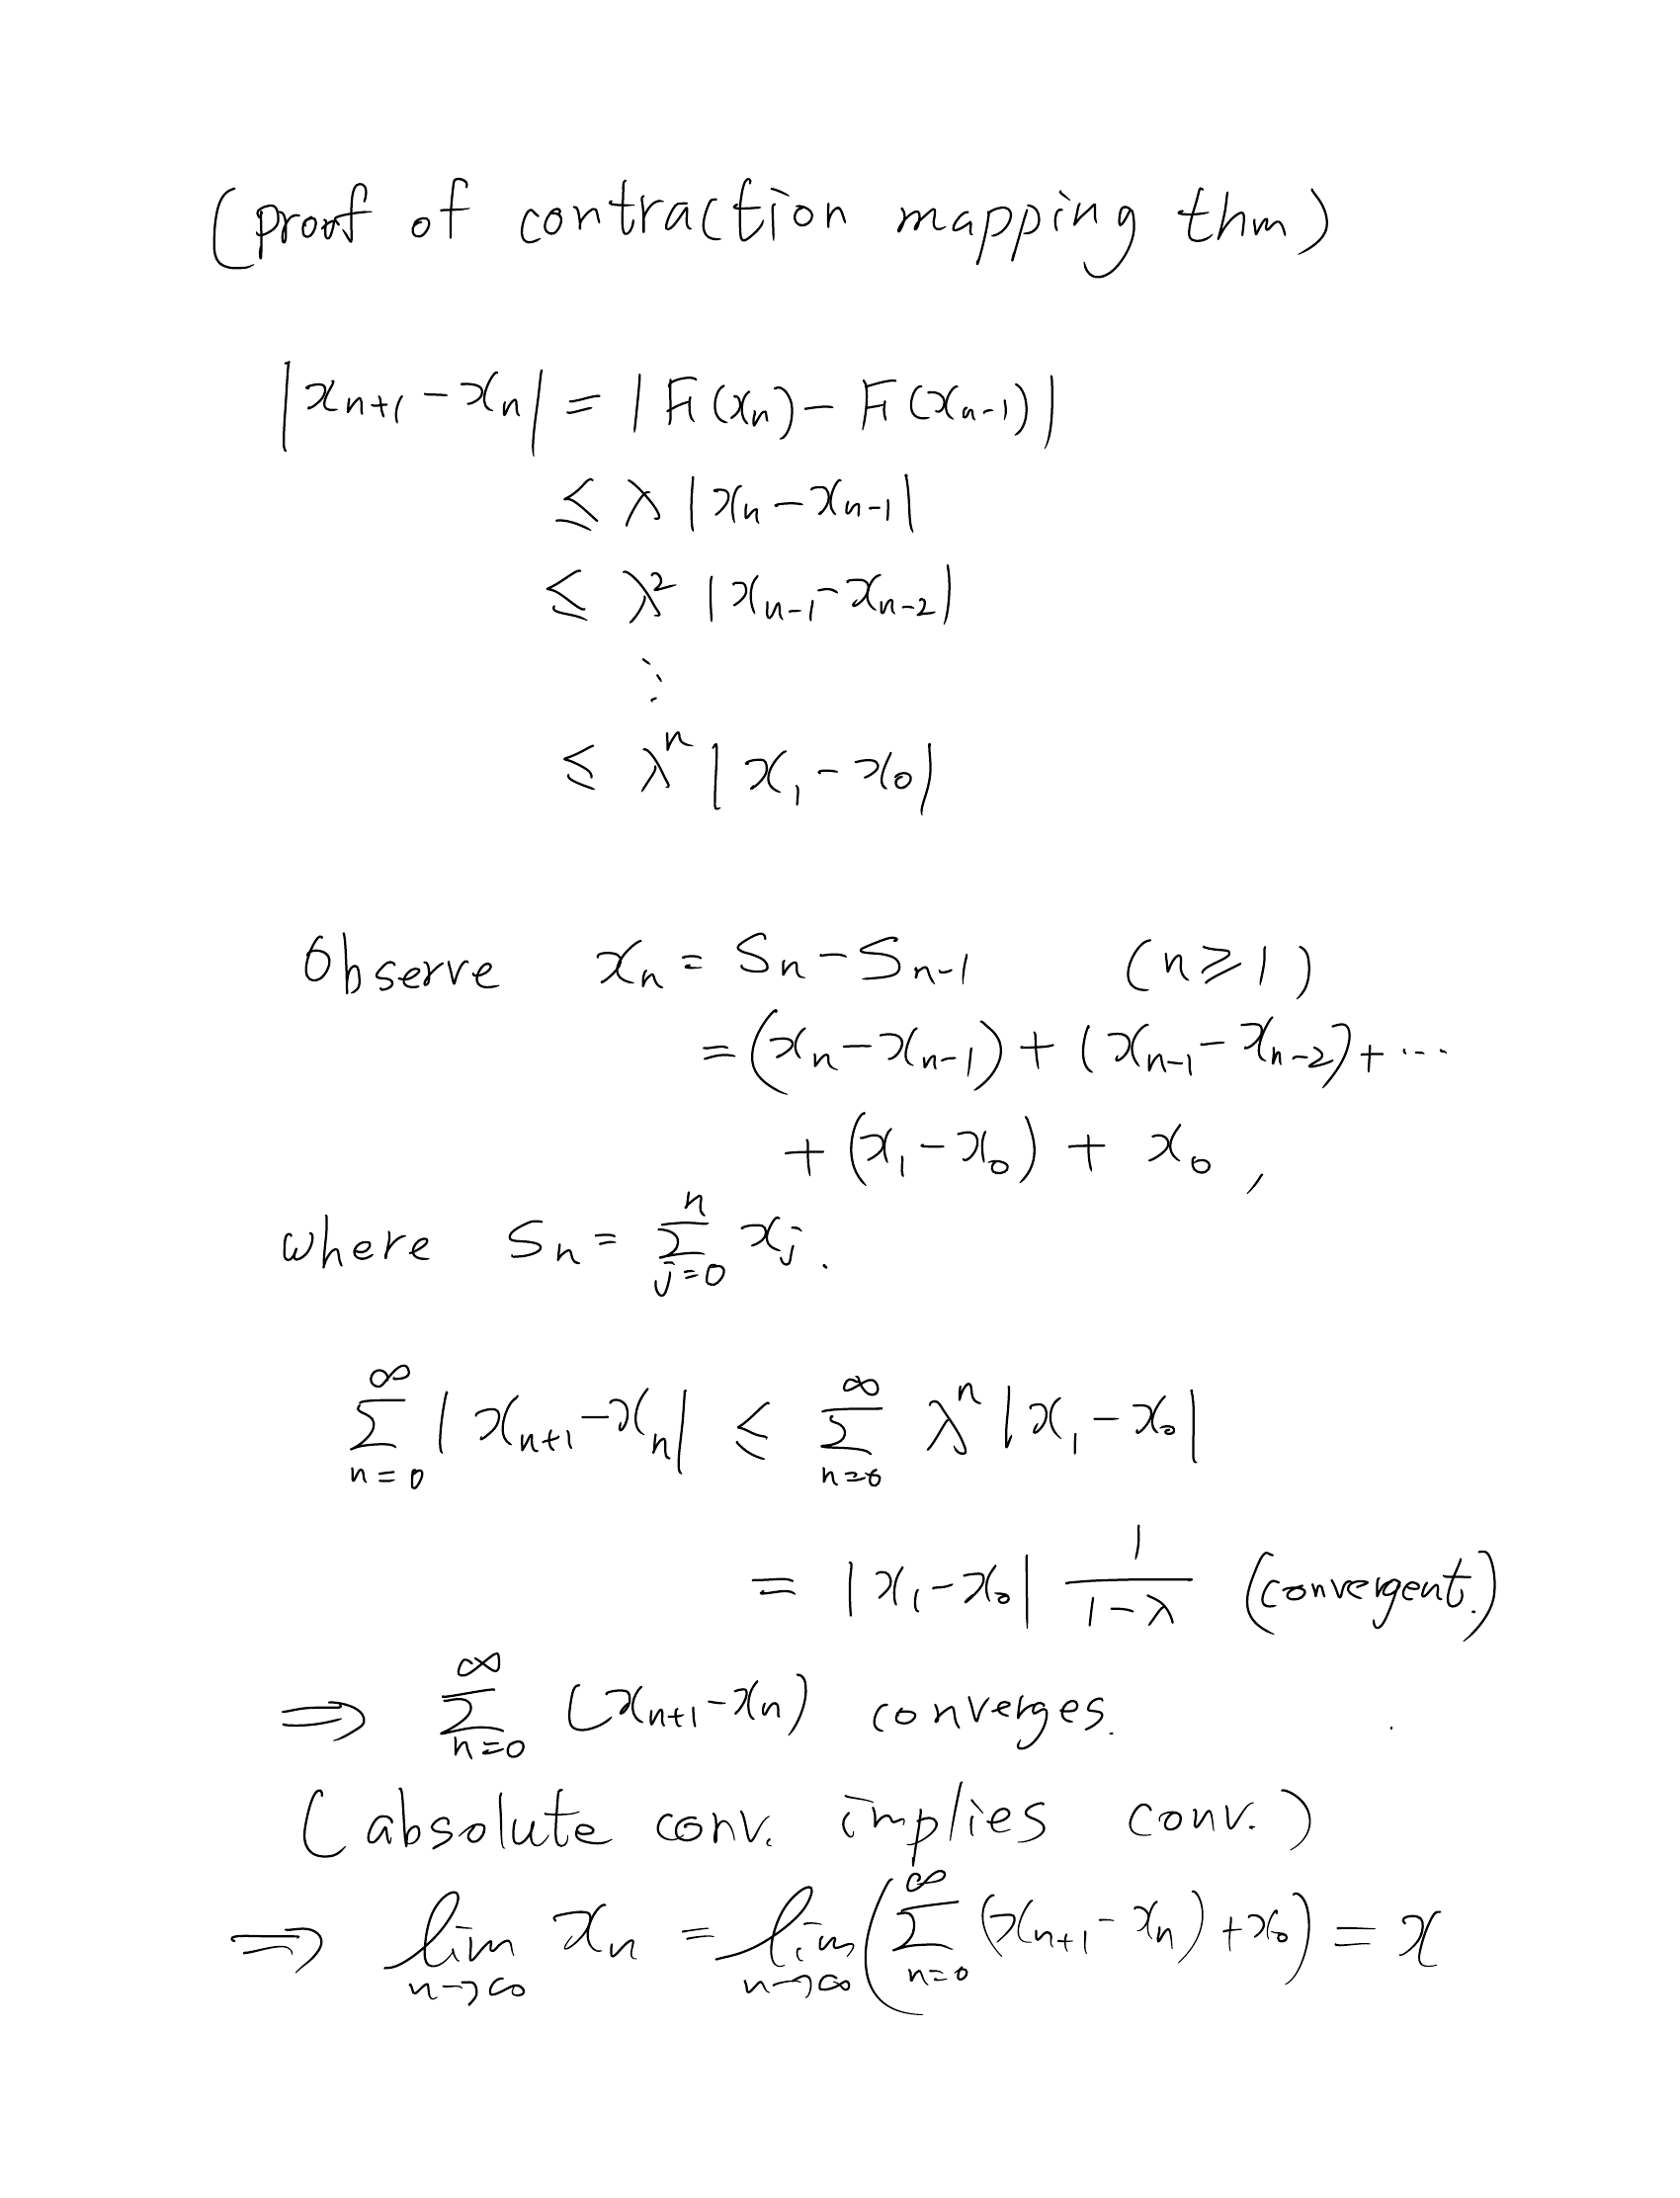 (proof of contraction mapping thm)
|x_{n+1} - x_n| = |F(x_n) - F(x_{n-1})|
≤ λ |x_n - x_{n-1}|
≤ λ² |x_{n-1} - x_{n-2}|
⋮
≤ λⁿ |x_1 - x_0|
Observe x_n = S_n - S_{n-1} (n ≥ 1)
= (x_n - x_{n-1}) + (x_{n-1} - x_{n-2}) + ...
+ (x_1 - x_0) + x_0 ,
where S_n = \sum_{j=0}^{n} x_j .
\sum_{n=0}^{∞} |x_{n+1} - x_n| ≤ \sum_{n=0}^{∞} λⁿ |x_1 - x_0|
= |x_1 - x_0| \frac{1}{1-λ} (convergent.)
⇒ \sum_{n=0}^{∞} (x_{n+1} - x_n) converges.
(absolute conv. implies conv.)
⇒ \lim_{n→∞} x_n = \lim_{n→∞} ( \sum_{n=0}^{∞} (x_{n+1} - x_n) + x_0 ) = x